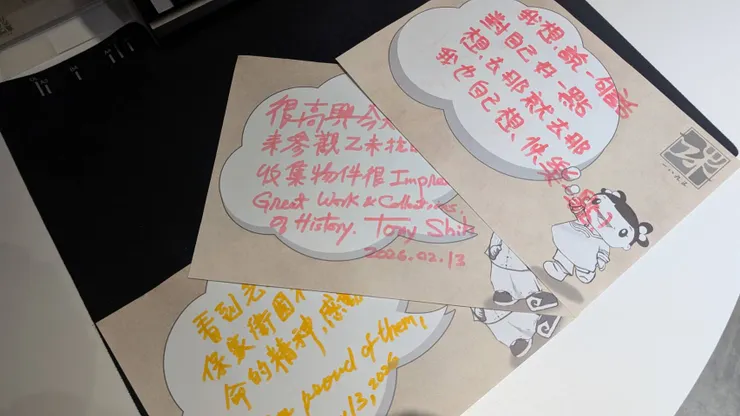 我想,說一句話
對自己好一點
想,去那就去那
我也自己想,快樂
很高興今
來參觀乙未抗
收集物件很 Impre
Great Work & Collections
of History. Tony Shih
2026.02.13
看到先
保家衛國
命的精神,感
proud of them,
13, 2026